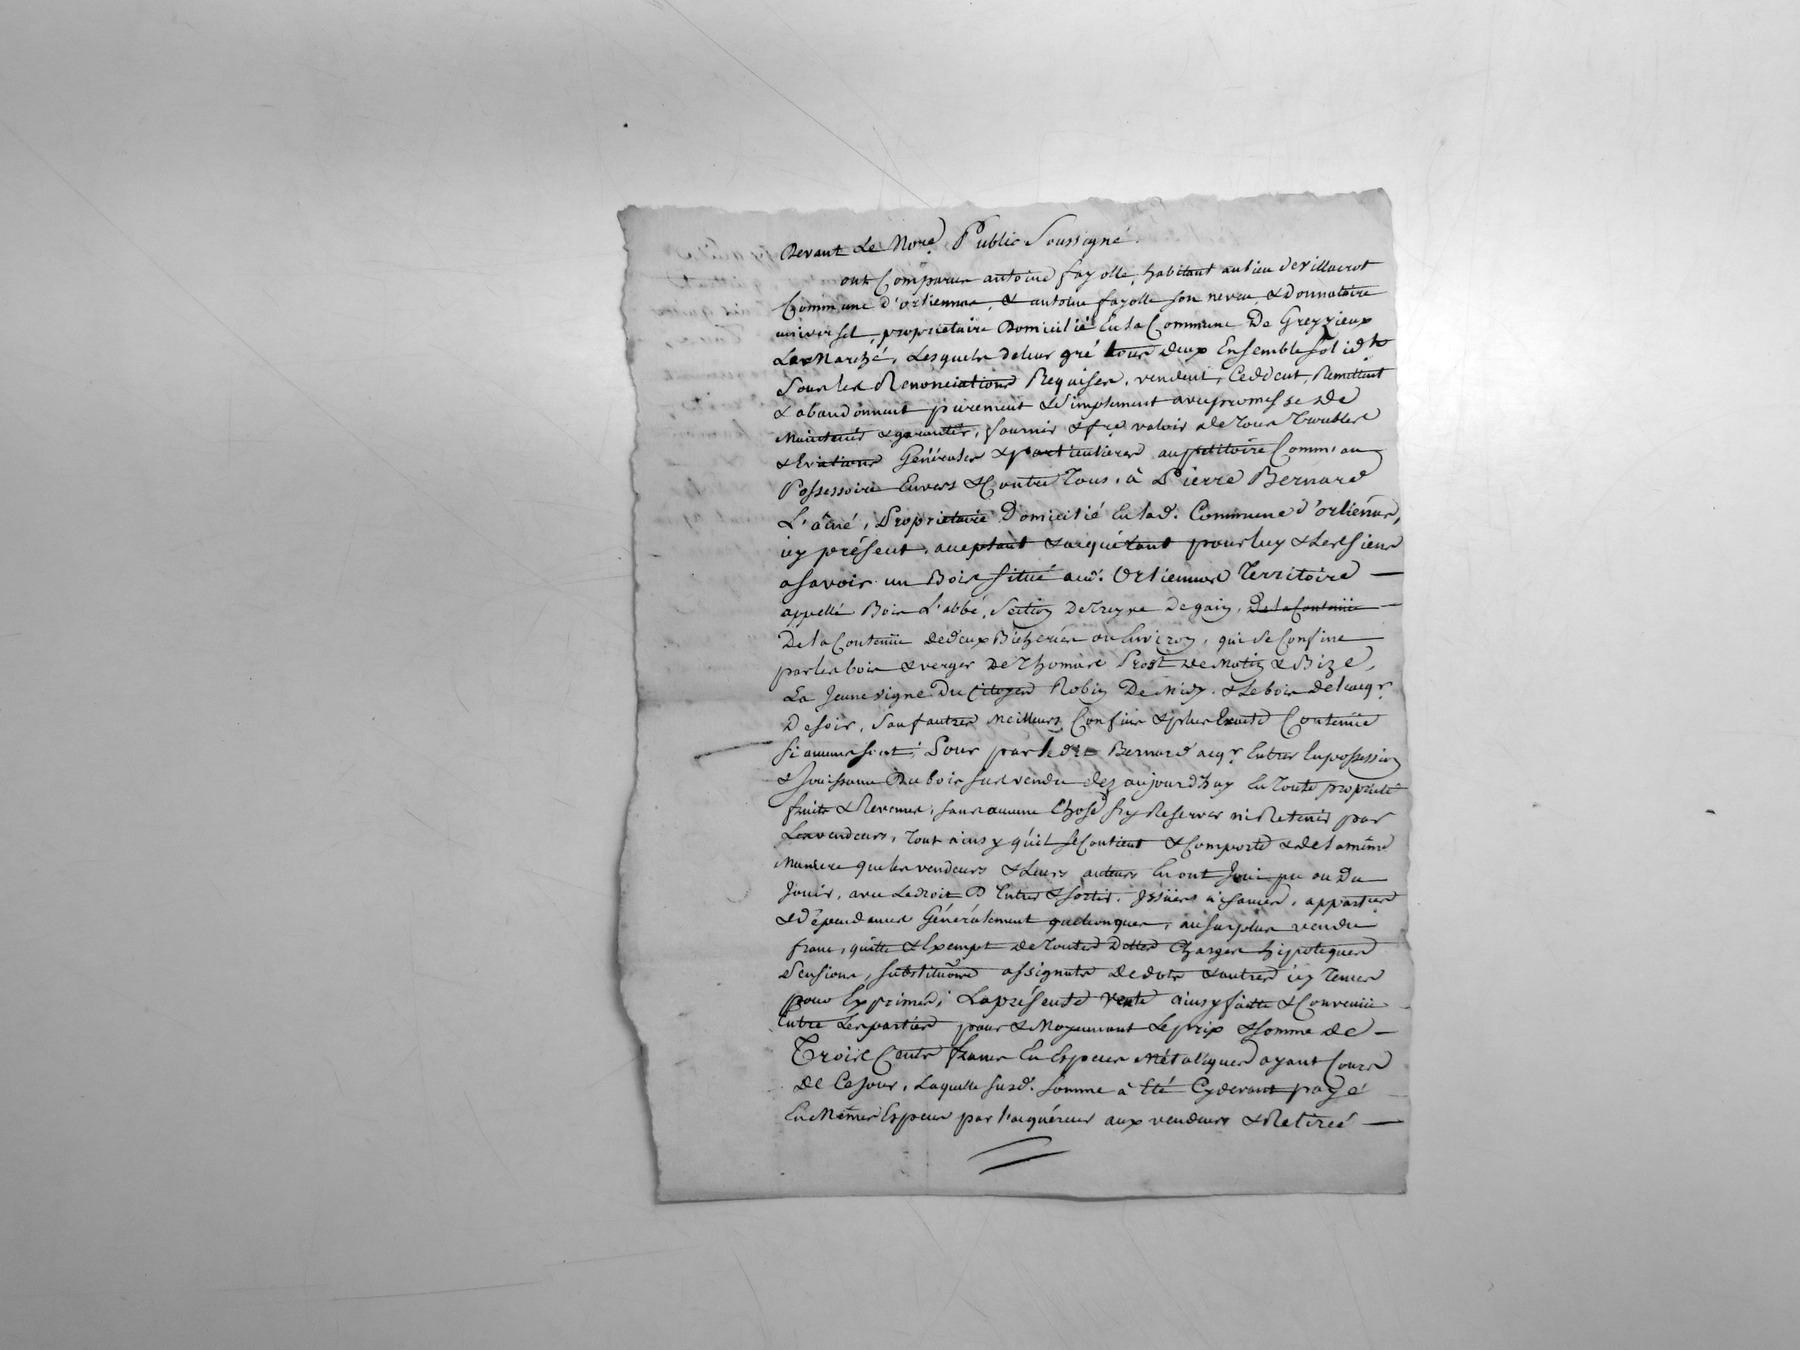 Devant Le No.re Public Soussigné.
ont Comparu antoine fayolle, habitant au lieu de Villacrot
Commune d'orliennas, & antoine fayolle son neveu, & Donnataire
universel, propriétaire Domicilié En la Commune De Greyzieux
Le Marché, Lesquels de leur gré tous deux Ensemble solid.t
Sous les Renonciations Requises, vendent, Cedent, Remettent
& abandonnent purement & simplement avec promesse de
Maintenir & garantir, fournir & f.re valoir de Tous Troubles
& Evictions Générales & particulieres au petitoire Comm'au
Possessoire Envers & Contre Tous, à Pierre Bernard
L'ainé, Propriétaire Domicilié En lad. Commune d'orliénas,
icy présent, aceptant & acquérant pour luy & Les siens
asavoir un Bois situé aud. Orliennas Territoire
appellé Bois L'abbé, Section De Treyne De gain, De la Contenüe
De la Contenüe de deux Bicherées ou Environ, qui se Confine
par les bois & verger De Thomas Prost de Matin & Bize,
La Jeune vigne Du Citoyen Robin De Midy, & Le bois de l'acqr.
De soir, Sauf autres Meilleurs Confins & plus Exacte Contenüe
si aucuns sont; Pour par led. Bernard acqr. Entrer En possession
& Jouissance Du bois sus vendu dez aujourd'huy En Toute propriété
fruits & Revenus, sans aucune Chose s'y Reserver ni Retenir par
Les vendeurs, Tout ainsy qu'il se Contient & Comporte & de la même
Maniere que les vendeurs & Leurs auteurs En ont Joui pu ou Du
Jouir, avec Le droit D'Entrer & sortir, Issües aisances, appart.ces
& Dépendances Générâlement quelconques, au surplus vendu
franc, quitte & Exempt de Toutes Dettes Charges hipoteques
Pensions, substitu.ons assignats de dots & autres icy Tenus
pour Exprimés; La présente vente ainsy faitte & Convenüe
Entre Les parties pour & Moyennant Le prix & somme de
Trois Cents francs En Especes Métalliques ayant Cours
de Ce Jour, Laquelle susd. somme à Eté Cy devant payé
En Mêmes Especes par l'acquéreur aux vendeurs & Retiréé